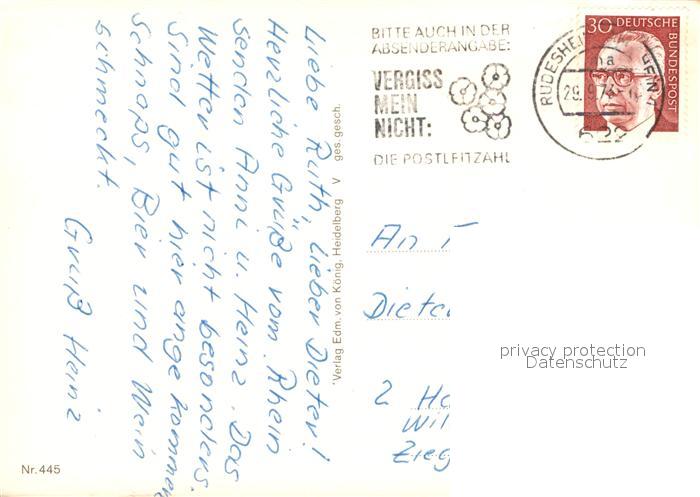 Liebe Ruth, lieber Dieter!
Herzliche Grüße vom Rhein
senden Anni u. Heinz. Das
Wetter ist nicht besonders.
Sind gut hier angekommen
Schnaps, Bier und Wein
schmeckt.
Gruß Heinz
Verlag Edm. von König, Heidelberg V ges. gesch.
Nr. 445
BITTE AUCH IN DER
ABSENDERANGABE:
VERGISS
MEIN
NICHT:
DIE POSTLEITZAHL
30 DEUTSCHE
BUNDESPOST
RÜDESHEIM
29.9.7
An
Diete
2 Ha
Wil
Zieg
privacy protection
Datenschutz